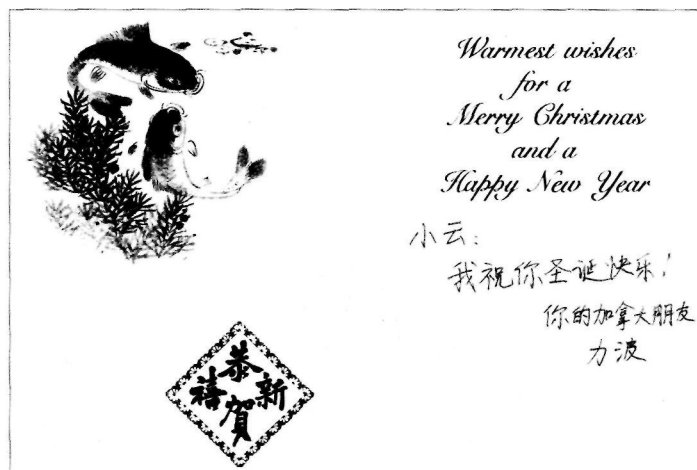 Warmest wishes
for a
Merry Christmas
and a
Happy New Year
小云：
我祝你圣诞快乐！
你的加拿大朋友
力波
恭賀新禧